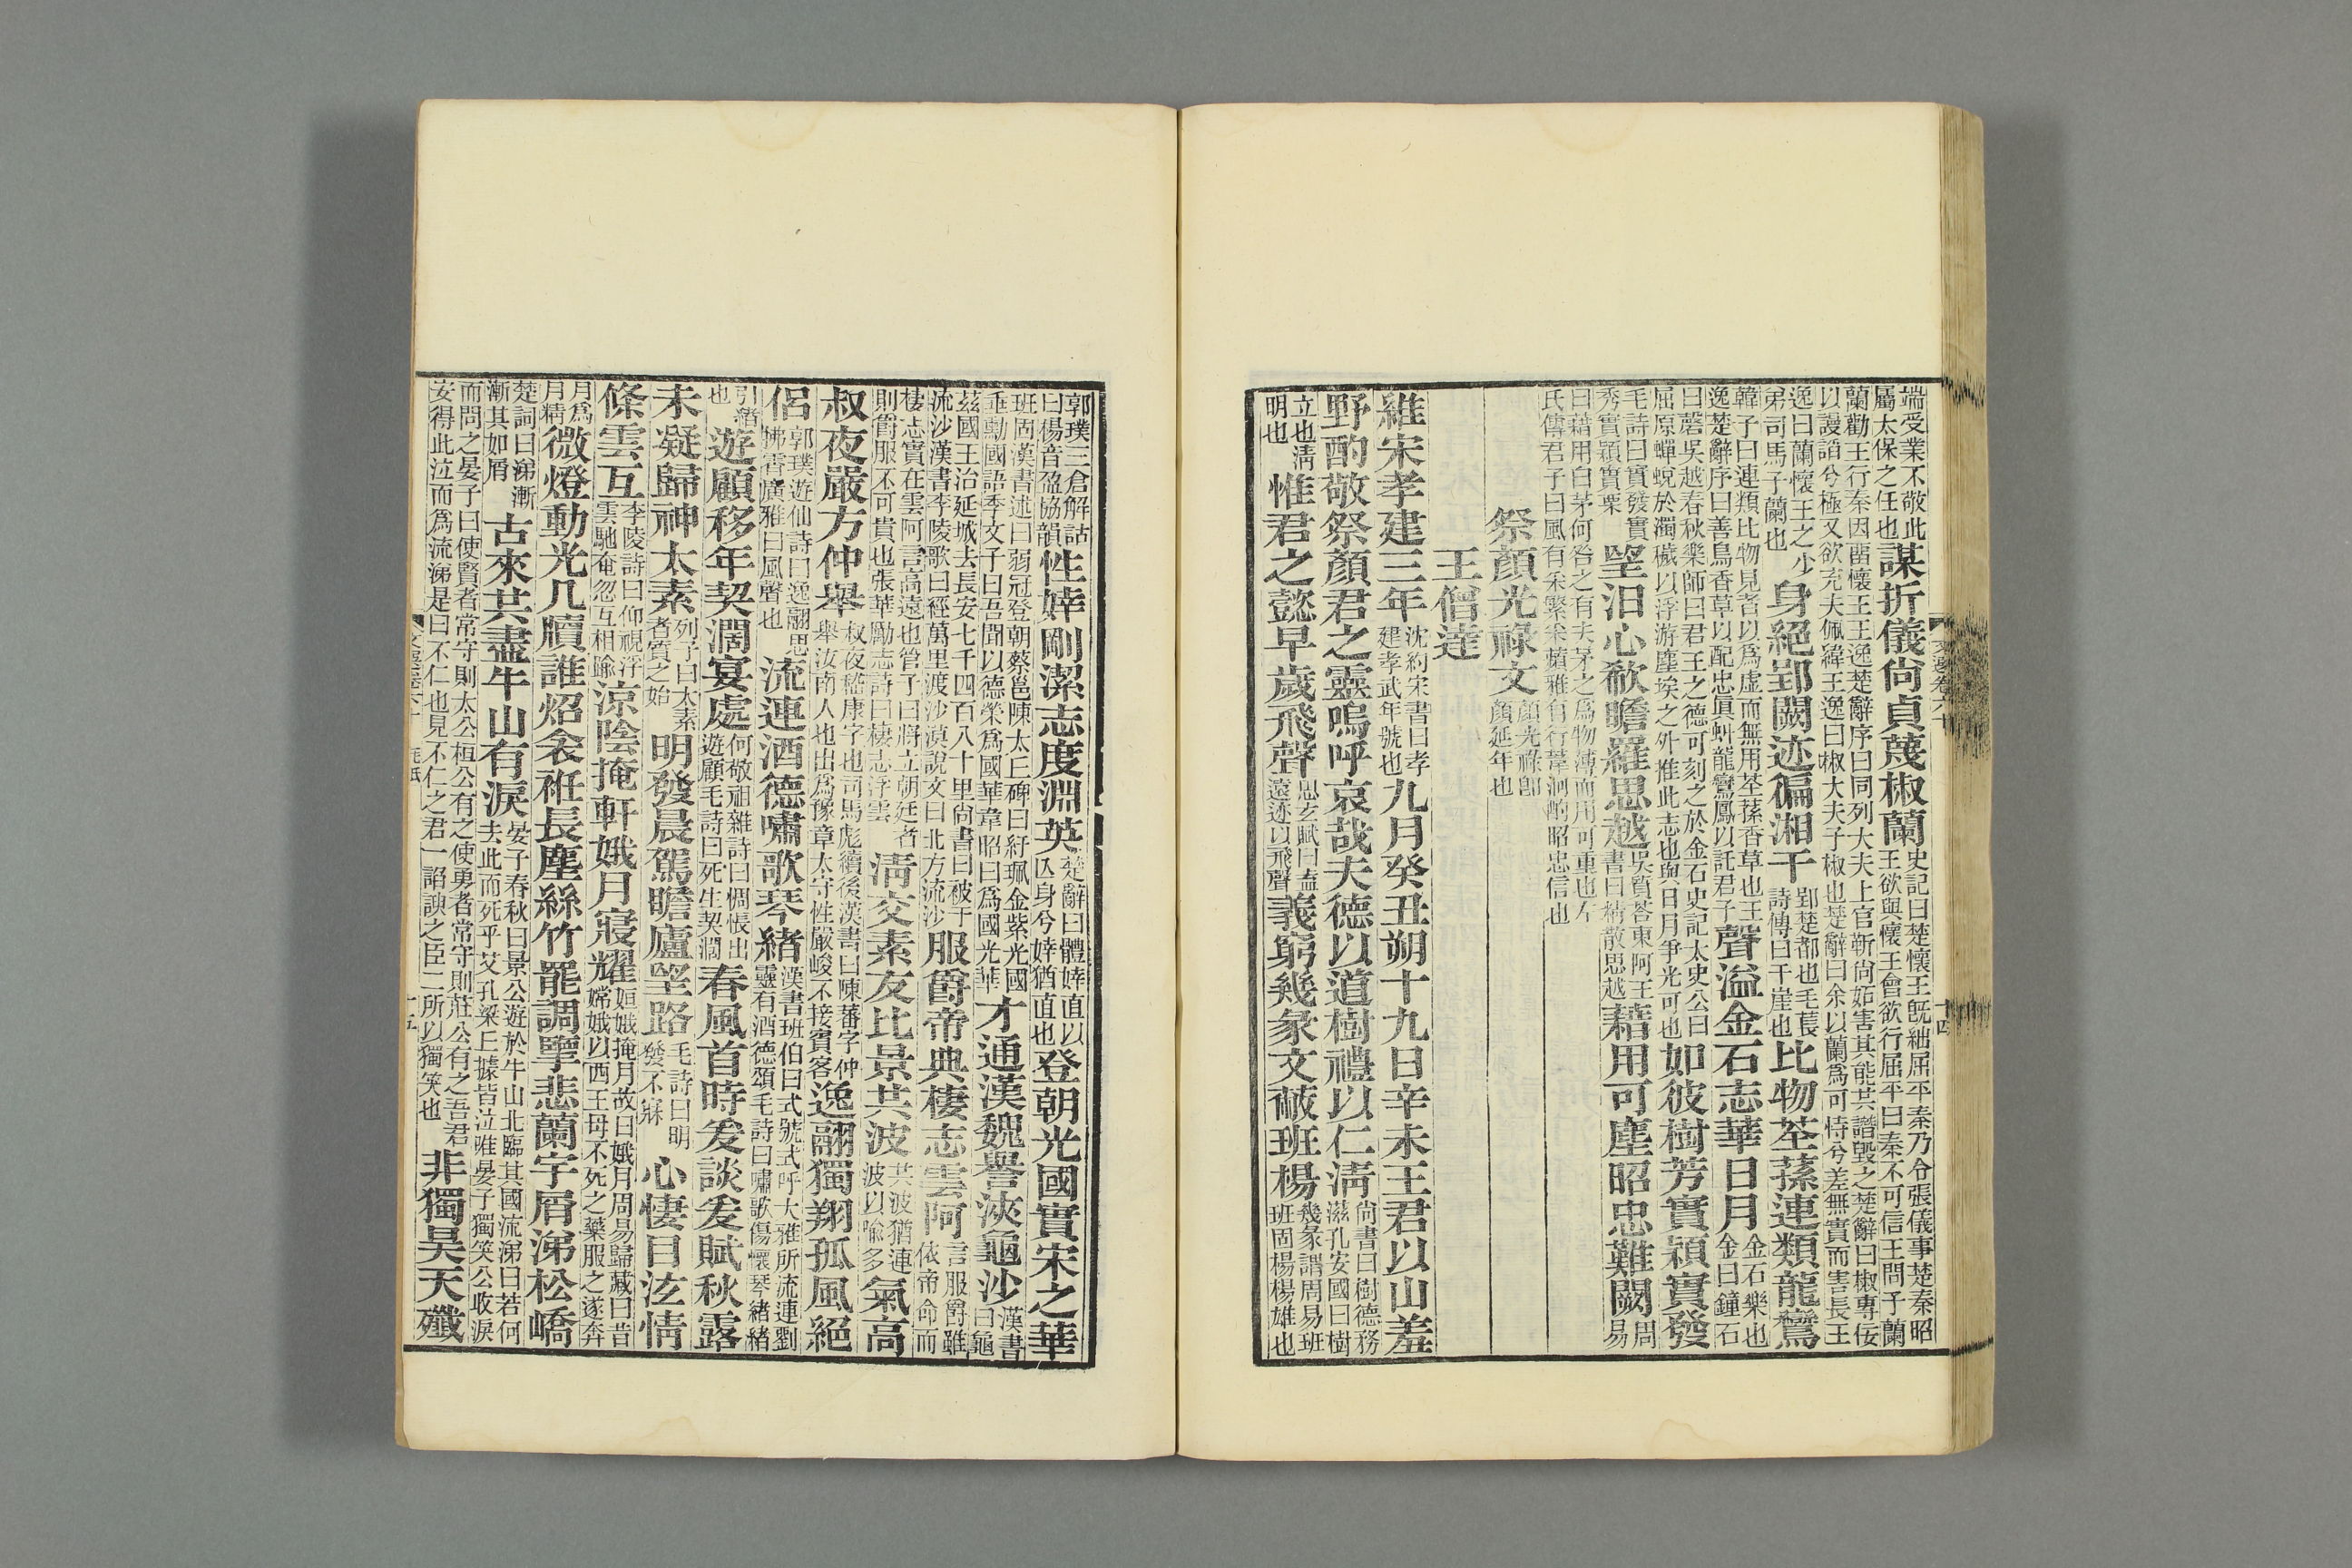 端受業不敬此屬太保之任也謀折儀尚貞蔑椒蘭史記曰楚懷王旣絀屈平秦乃令張儀事楚秦昭王欲與懷王會欲行屈平曰秦不可信王問子蘭
蘭勸王行秦因畱懷王王逸楚辭序曰同列大夫上官靳尚妬害其能共譖毀之楚辭曰椒專佞以謾謟兮極又欲充夫佩緯王逸曰椒大夫子椒也楚辭曰余以蘭爲可恃兮羌無實而害長王
逸曰蘭懷王之少弟司馬子蘭也身絕郢闕迹徧湘干郢楚都也毛萇詩傳曰干崖也比物荃蓀連類龍鸞
韓子曰連類比物見者以爲虛而無用荃蓀香草也王逸楚辭序曰善鳥香草以配忠貞虯龍鸞鳳以託君子聲溢金石志華日月金石樂也金曰鐘石
曰磬吳越春秋樂師曰君王之德可刻之於金石史記太史公曰屈原蟬蛻於濁穢以浮游塵埃之外推此志也與日月爭光可也如彼樹芳實穎實發
毛詩曰實發實秀實穎實栗望汨心欷瞻羅思越吳質荅東阿王書曰精散思越藉用可塵昭忠難闕周易
曰藉用白茅何咎之有夫茅之爲物薄而用可重也左氏傳君子曰風有采蘩采蘋雅有行葦泂酌昭忠信也
祭顏光祿文顏光祿卽顏延年也
王僧達
維宋孝建三年沈約宋書曰孝建孝武年號也九月癸丑朔十九日辛未王君以山羞
野酌敬祭顏君之靈嗚呼哀哉夫德以道樹禮以仁清尚書曰樹德務滋孔安國曰樹
立也清明也惟君之懿早歲飛聲思玄賦曰盍遠迹以飛聲義窮幾彖文蔽班楊幾彖謂周易班班固楊楊雄也
郭璞三倉解詁曰楊音盈協韻性婞剛潔志度淵英楚辭曰體婞直以亾身兮婞猶直也登朝光國實宋之華
班固漢書述曰弱冠登朝蔡邕陳太丘碑曰紆珮金紫光國垂勳國語季文子曰吾聞以德榮爲國華韋昭曰爲國光華才通漢魏譽浹龜沙漢書曰龜
茲國王治延城去長安七千四百八十里尚書曰被于流沙漢書李陵歌曰經萬里渡沙漠說文曰北方流沙服爵帝典棲志雲阿言服爵雖依帝命而
棲志實在雲阿言高遠也管子曰將立朝廷者則爵服不可貴也張華勵志詩曰棲志浮雲淸交素友比景共波共波猶連波以喻多氣高
叔夜嚴方仲舉叔夜嵇康字也司馬彪續後漢書曰陳蕃字仲舉汝南人也出爲豫章太守性嚴峻不接賓客逸翮獨翔孤風絕
侶郭璞遊仙詩曰逸翮思拂霄廣雅曰風聲也流連酒德嘯歌琴緒漢書班伯曰式號式呼大雅所流連劉靈有酒德頌毛詩曰嘯歌傷懷琴緒緒
引緒也遊顧移年契濶宴處何敬祖雜詩曰惆悵出遊顧毛詩曰死生契濶春風首時爰談爰賦秋露
未凝歸神太素列子曰太素者質之始明發晨駕瞻廬望路毛詩曰明發不寐心悽目泫情
條雲互李陵詩曰仰視浮雲馳奄忽互相踰凉陰掩軒娥月寢耀姮娥掩月故曰娥月周易歸藏曰昔嫦娥以西王母不死之藥服之遂奔
月爲月精微燈動光几牘誰炤衾衽長塵絲竹罷調攬悲蘭宇屑涕松嶠
楚詞曰涕漸漸其如屑古來共盡牛山有淚晏子春秋曰景公遊於牛山北臨其國流涕曰若何去此而死乎艾孔梁丘據皆泣唯晏子獨笑公收淚
而問之晏子曰使賢者常守則太公桓公有之使勇者常守則莊公有之吾君安得此泣而爲流涕是曰不仁也見不仁之君一諂諛之臣二所以獨笑也非獨昊天殲